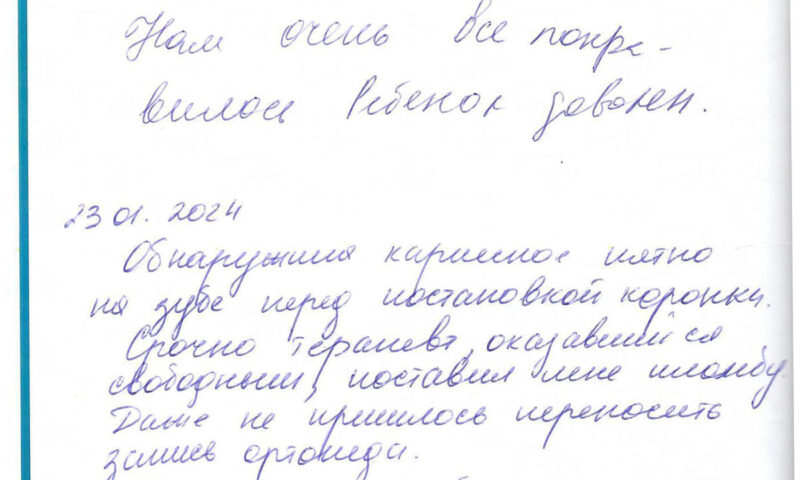 Нам очень все понра-
вилось Ребенок доволен.
23 01. 2024
Обнаружили кариесное пятно
на зубе перед постановкой коронки.
Срочно терапевт, оказавшийся
свободным, поставил мне пломбу.
Даже не пришлось переносить
запись ортопеда.